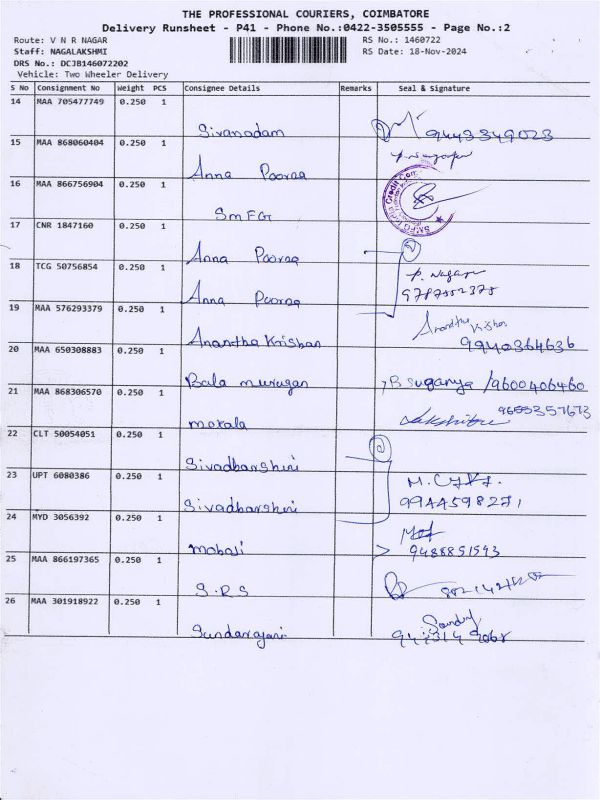 THE PROFESSIONAL COURIERS, COIMBATORE
Delivery Runsheet - P41 - Phone No.:0422-3505555 - Page No.:2
Route: V N R NAGAR
RS No.: 1460722
Staff: NAGALAKSHMI
RS Date: 18-Nov-2024
DRS No.: DCJB146072202
Vehicle: Two Wheeler Delivery
S No Consignment No Weight PCS Consignee Details Remarks Seal & Signature
14 MAA 705477749 0.250 1
Sivanadam 9443349023
15 MAA 868060404 0.250 1
Anna Pooraa
16 MAA 866756904 0.250 1
SMFG
17 CNR 1847160 0.250 1
Anna Pooraa
18 TCG 50756854 0.250 1
P. Nagar
Anna Pooraa
19 MAA 576293379 0.250 1
Anantha Krishnan
Anantha Krishan 9940364636
20 MAA 650308883 0.250 1
Bala murugan B Suganya /9600406460
21 MAA 868306570 0.250 1
mokala
22 CLT 50054051 0.250 1
Sivadharshini
23 UPT 6080386 0.250 1
Sivadharshini 9944598271
24 MYD 3056392 0.250 1
mobali 9488851593
25 MAA 866197365 0.250 1
S.R.S
26 MAA 301918922 0.250 1
Sundarajani